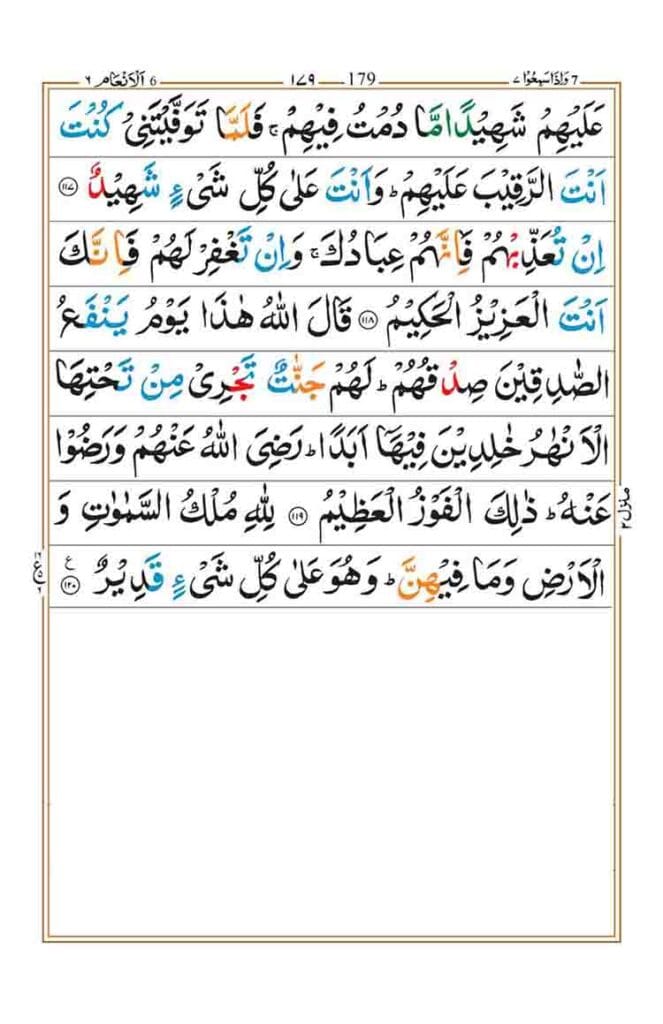 7 وَاِذَا سَمِعُوْا ٧
179 ١٧٩
6 اَلْاَنْعَام ٦
عَلَيْهِمْ شَهِيْدًا مَّا دُمْتُ فِيْهِمْ ۚ فَلَمَّا تَوَفَّيْتَنِيْ كُنْتَ
اَنْتَ الرَّقِيْبَ عَلَيْهِمْ ؕ وَاَنْتَ عَلٰى كُلِّ شَيْءٍ شَهِيْدٌ ﴿۱۱۷﴾
اِنْ تُعَذِّبْهُمْ فَاِنَّهُمْ عِبَادُكَ ۚ وَاِنْ تَغْفِرْ لَهُمْ فَاِنَّكَ
اَنْتَ الْعَزِيْزُ الْحَكِيْمُ ﴿۱۱۸﴾ قَالَ اللّٰهُ هٰذَا يَوْمُ يَنْفَعُ
الصّٰدِقِيْنَ صِدْقُهُمْ ؕ لَهُمْ جَنّٰتٌ تَجْرِيْ مِنْ تَحْتِهَا
الْاَنْهٰرُ خٰلِدِيْنَ فِيْهَاۤ اَبَدًا ؕ رَضِيَ اللّٰهُ عَنْهُمْ وَرَضُوْا
عَنْهُ ؕ ذٰلِكَ الْفَوْزُ الْعَظِيْمُ ﴿۱۱۹﴾ لِلّٰهِ مُلْكُ السَّمٰوٰتِ وَ
الْاَرْضِ وَمَا فِيْهِنَّ ؕ وَهُوَ عَلٰى كُلِّ شَيْءٍ قَدِيْرٌ ﴿۱۲۰﴾ ع
منزل ٢